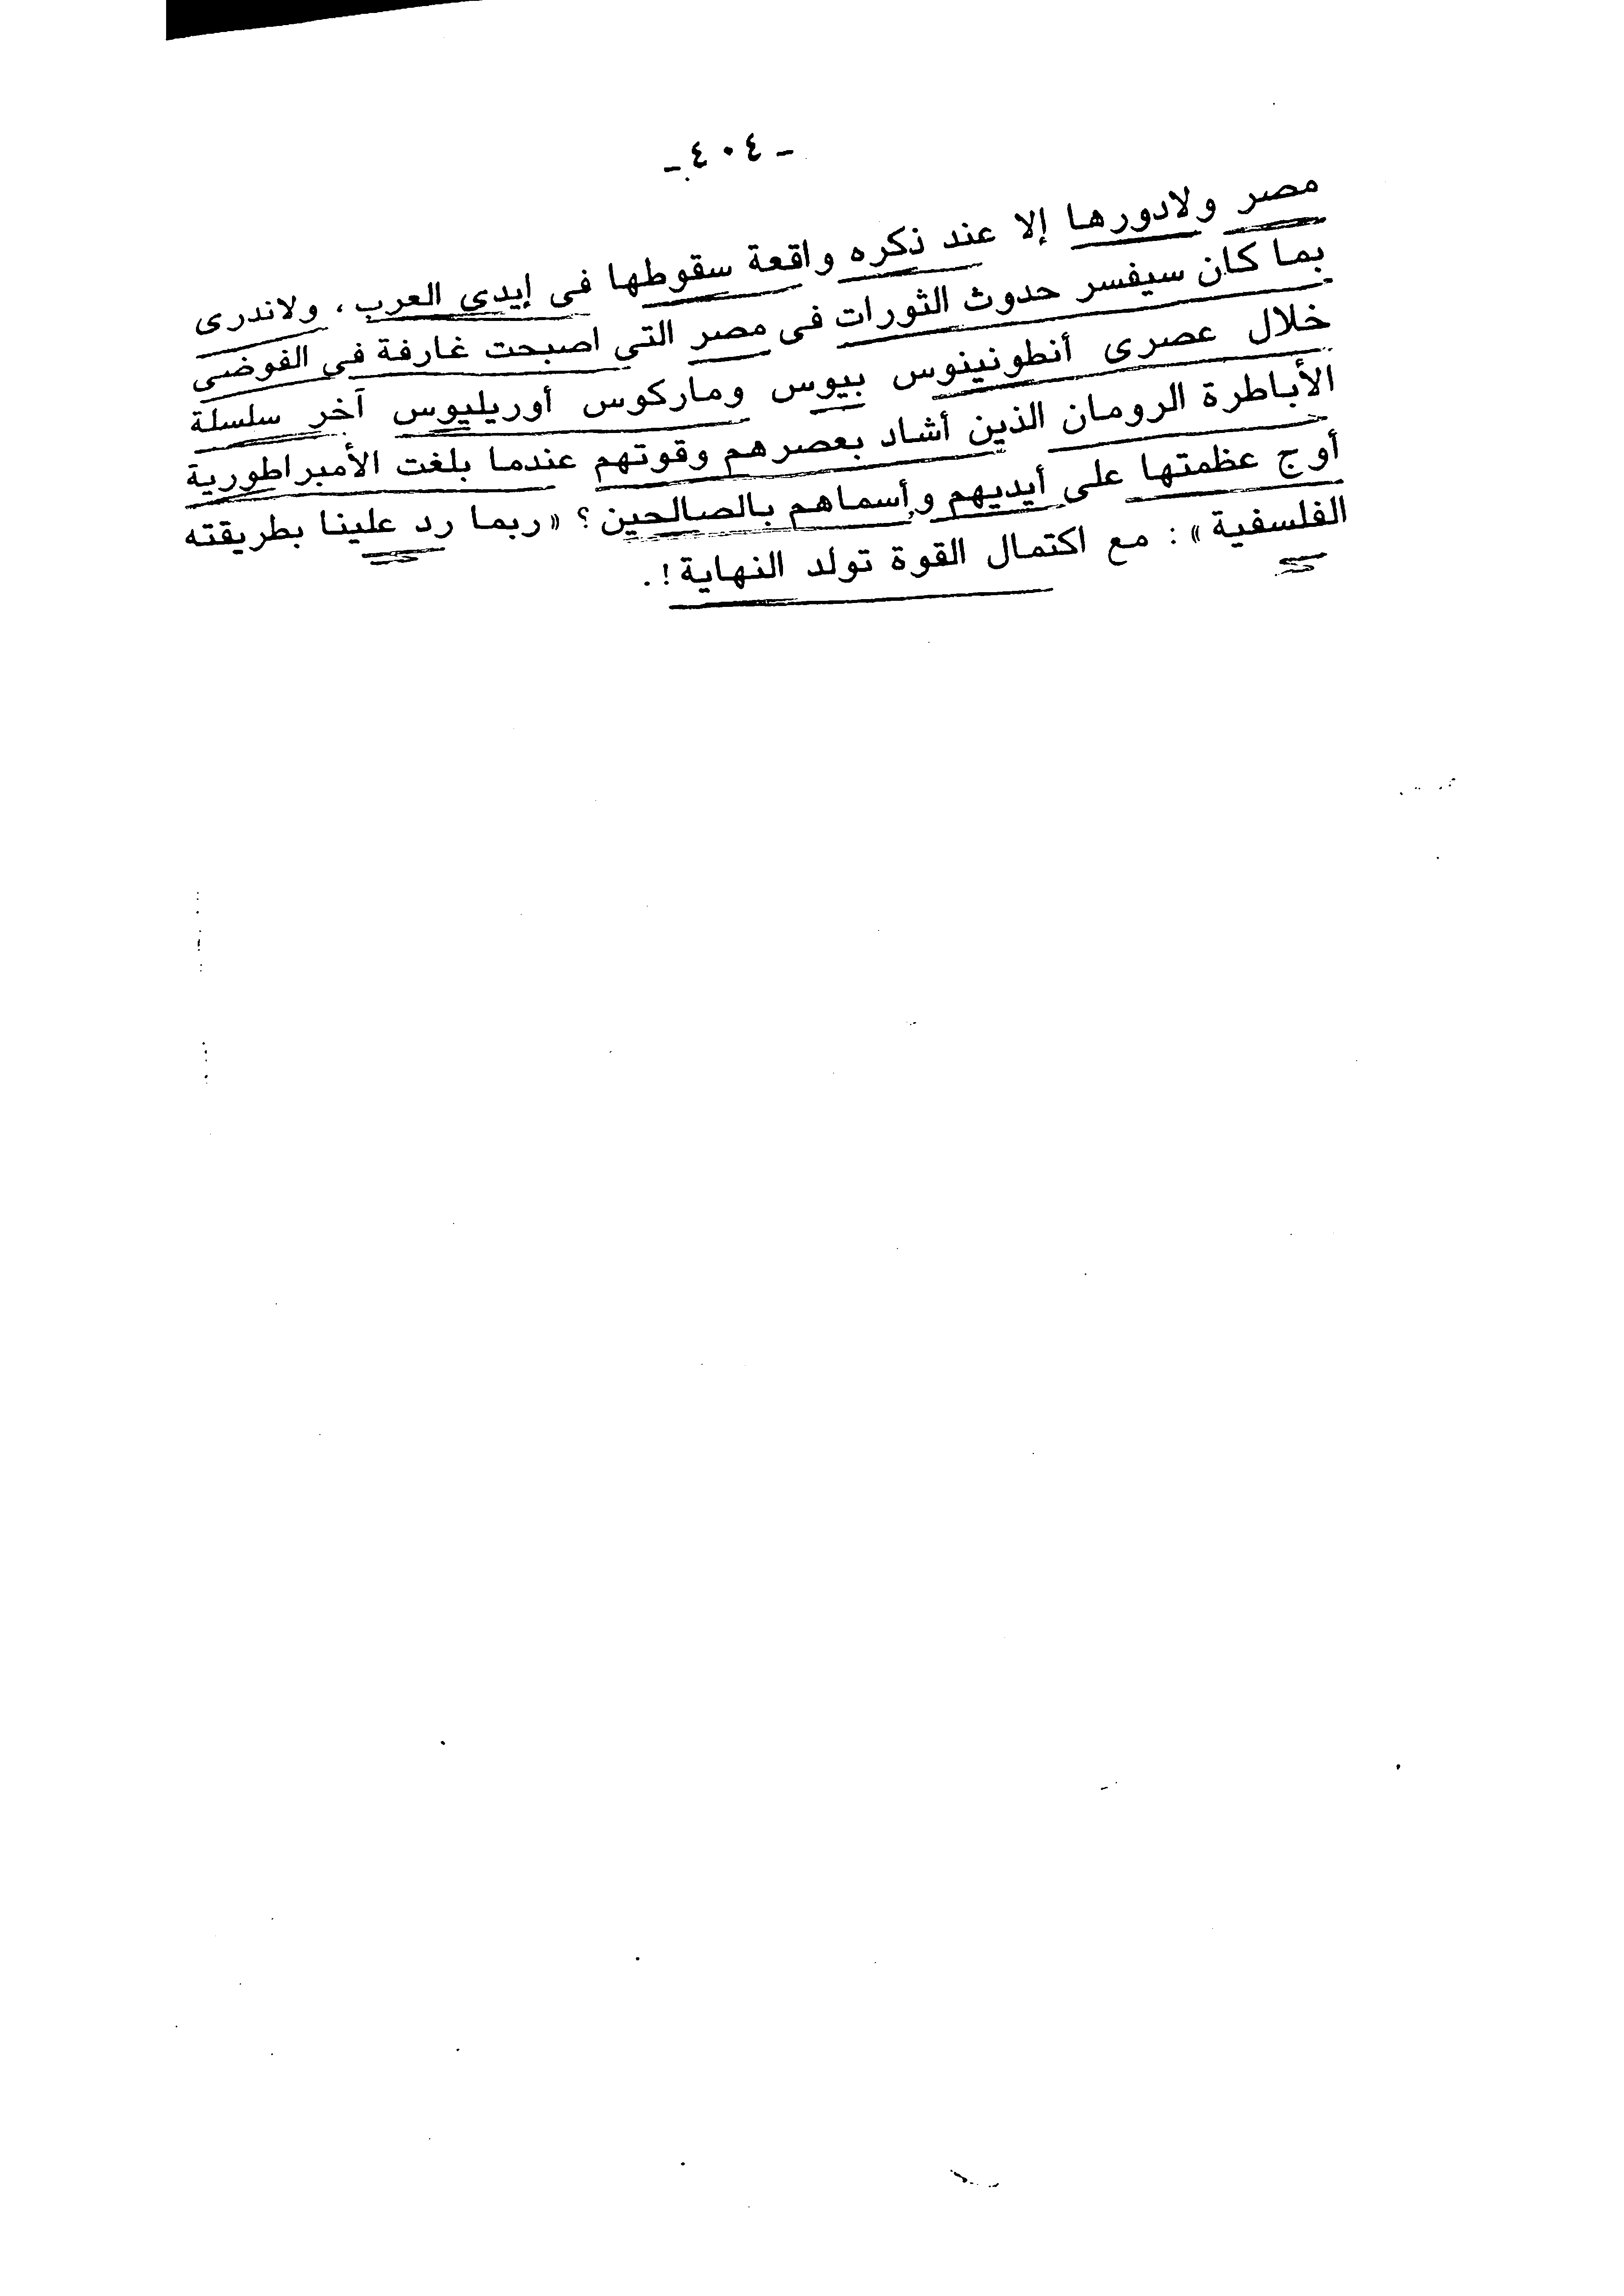 ـ ٤٠٤ ـ
مصر ولادورها إلا عند ذكره واقعة سقوطها فى إيدى العرب ، ولاندرى
بما كان سيفسر حدوث الثورات فى مصر التي اصبحت غارفة في الفوضى
خلال عصرى أنطونينوس بيوس وماركوس أوريليوس آخر سلسلة
الأباطرة الرومان الذين أشاد بعصرهم وقوتهم عندما بلغت الأمبراطورية
أوج عظمتها على أيديهم وأسماهم بالصالحين ؟ « ربما رد علينا بطريقته
الفلسفية » : مع اكتمال القوة تولد النهاية ! .